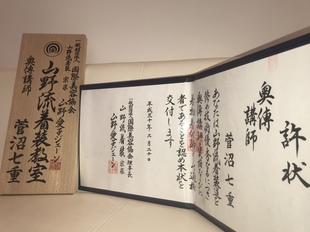 一般社団法人 国際美容協会
山野流着装 宗家 山野愛子ジェーン
山野流着装教室
奥傳講師 菅沼七重
許状
奥傳
講師
菅沼七重
あなたは山野流着装道を
者であることを認め本状を
交付します
平成三十年二月二十日
一般社団法人 国際美容協会 理事長
山野流着装 宗家
山野愛子ジェーン